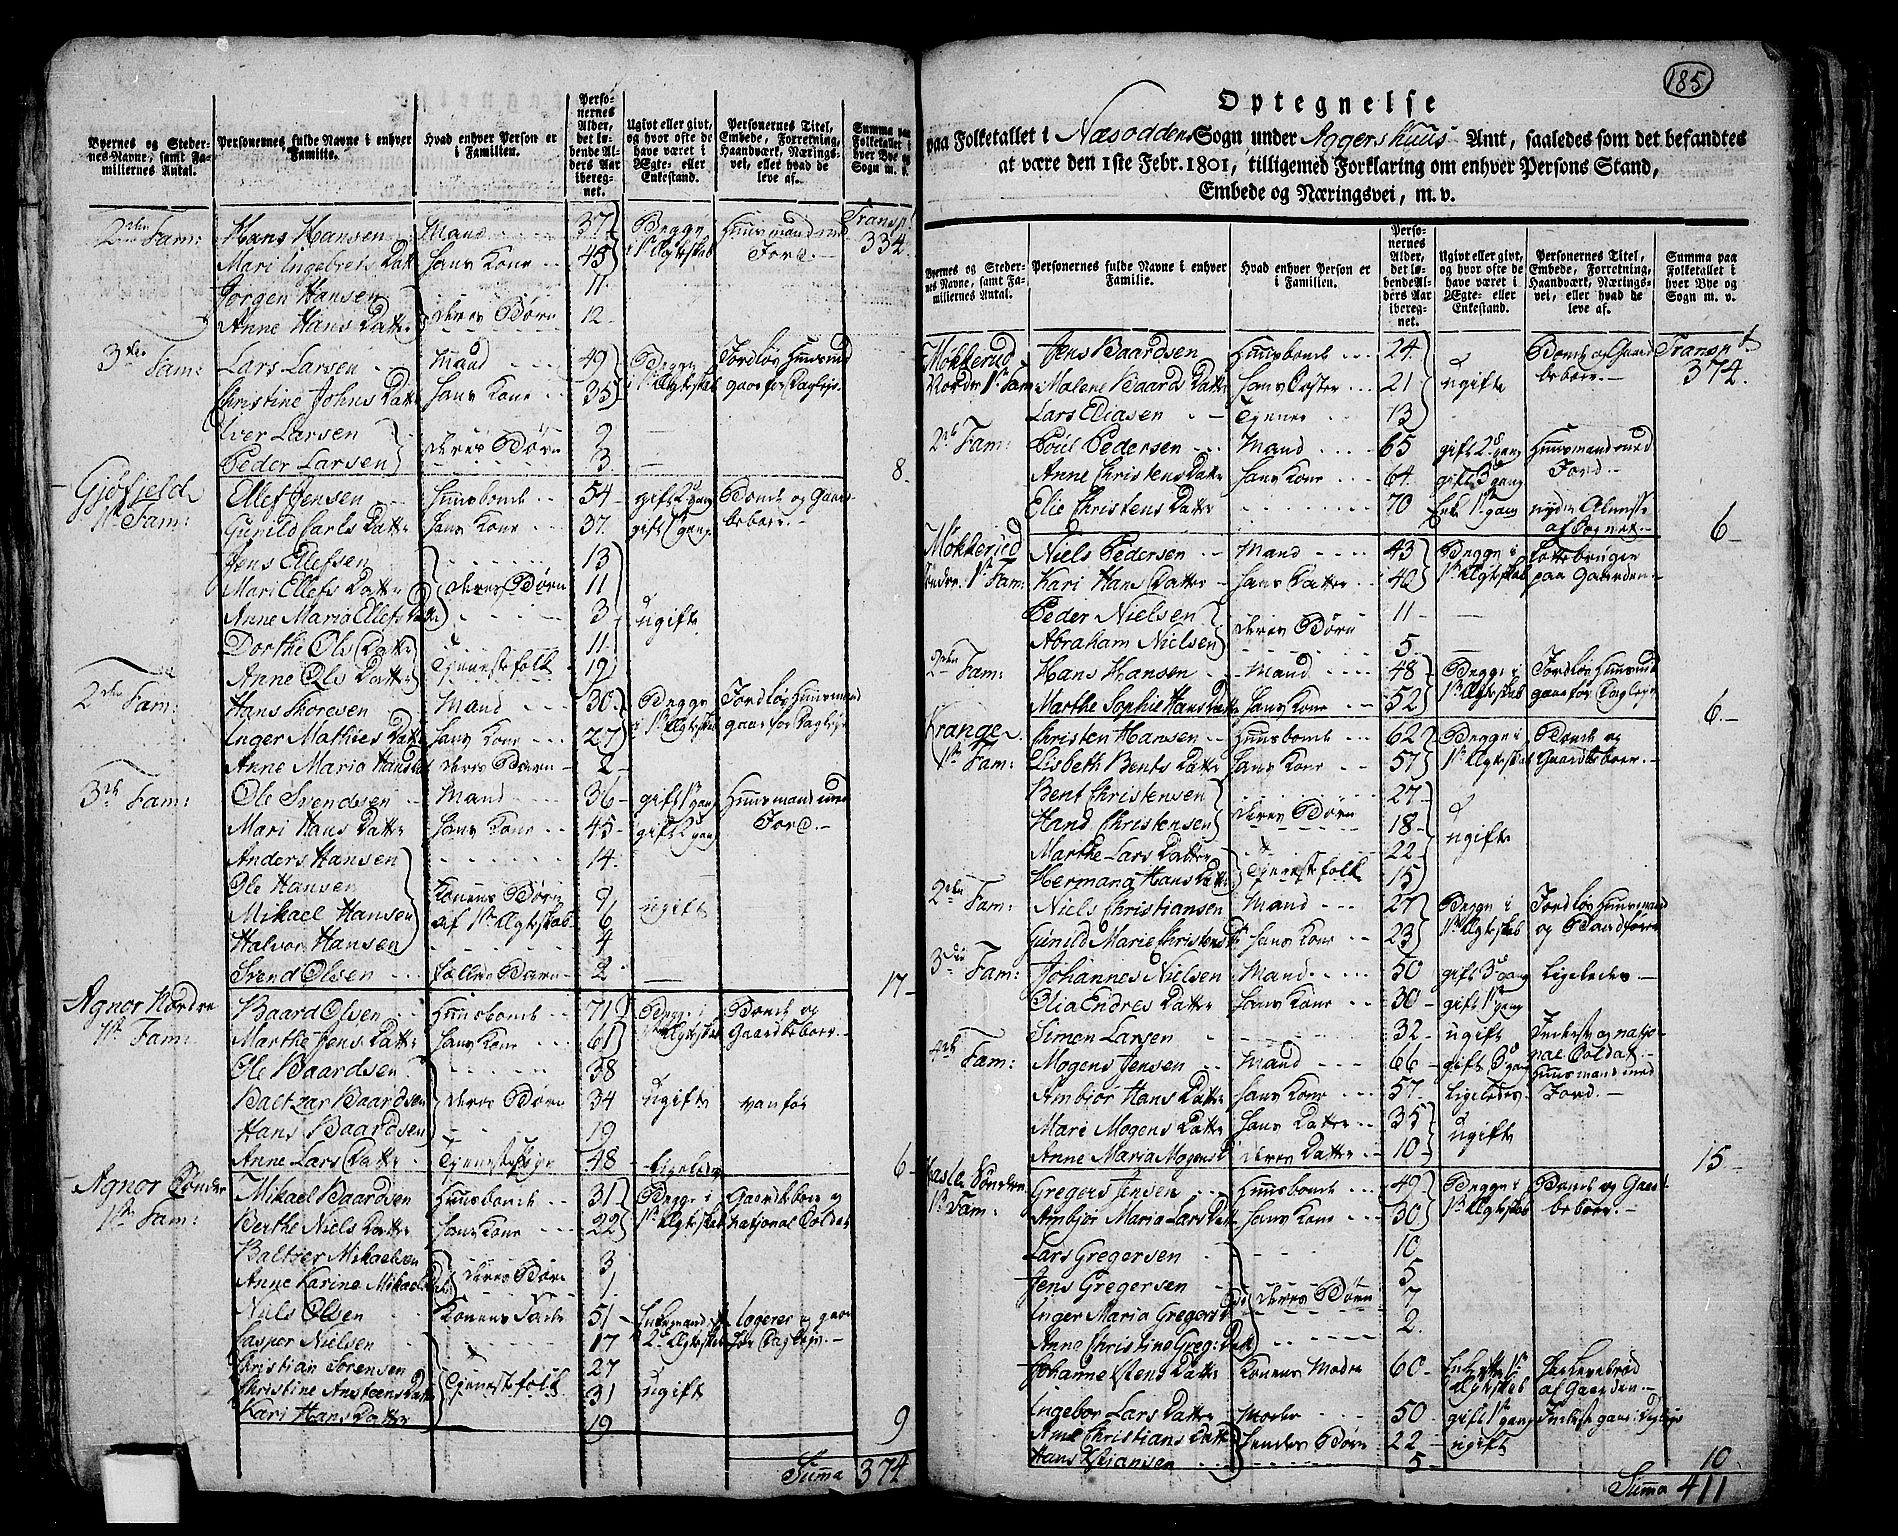 Byernes og Stedernes Navne, samt Familiernes Antal.
Personernes fulde Navne i enhver Familie.
Hvad enhver Person er i Familien.
Personernes Alder, det løbende Alders Aar iberegnet.
Ugivt eller givt, og hvor ofte de have været i Egte- eller Enkestand.
Personernes Titel, Embede, Forretning, Haandværk, Næringsvei, eller hvad de leve af.
Summa paa Folketallet i hver Bye og Sogn m. v.
2den Fam: Hans Hansen Mand 37 Begge Huusmand med Transp:
Mari Ingebrets Datter hans Kone 45 i 1ste Ægteskab Jord. 334.
Jorgen Hansen 11
Anne Hans Datter deres Börn 12
3die Fam: Lars Larsen Mand 49 Begge Jordløs Huusmand
Christine Johns Datter hans Kone 35 i 1ste Ægteskab gaar for Dagleje
Iver Larsen 9
Peder Larsen deres Börn 3 8.
Gjöfjeld Ellef Jensen Huusbonde 54 gift 2 gang Bonde og Gaard-
1ste Fam: Gunild Carls Datter hans Kone 37 gift 1ste gang beboer.
Jens Ellefsen 13
Mari Ellefs Datter deres Börn 11
Anne Maria Ellefs Datter 3 ugifte
Dorthe Ols Datter 11
Anne Ols Datter Tjenestefolk 19
2den Fam: Hans Thoresen Mand 30 Begge Jordløs Huusmand
Inger Mathies Datter hans Kone 27 i 1ste Ægteskab gaar for Dagleje
Anne Maria Hansdatter deres Barn 2
3die Fam: Ole Svendsen Mand 36 gift 1ste gang Huusmand med
Mari Hans Datter hans Kone 45 gift 2 gang Jord.
Anders Hansen 14
Ole Hansen Konens Börn 9
Mikael Hansen af 1ste Ægteskab 6 ugift
Halvor Hansen 4
Svend Olsen fælles Barn 2 17
Agnor Nordre Baard Olsen Huusbonde 71 Begge i Bonde og
1ste Fam: Marthe Jens Datter hans Kone 61 1ste Ægteskab Gaardbeboer.
Ole Baardsen 38
Baltzar Baardsen deres Börn 34 ugifte vanför
Hans Baardsen 19
Anne Lars Datter Tjenestepige 48 ligeledes 6
Agnor Sönder Mikael Baardsen Huusbonde 31 Begge i Gaardbeboer og
1ste Fam: Berthe Niels Datter hans Kone 22 1ste Ægteskab national Soldat
Baltzer Mikaelsen 3
Anne Karine Mikaels Dat: deres Börn 1
Niels Olsen Konens Fader 51 Enkemand logerer og gaar
Casper Nielsen 17 2d Ægteskab for Dagleje.
Christian Sorensen 27
Christine Anstens Datter Tjenestefolk 31 ugift
Kari Hans Datter 19 9
Suma 374
185
Optegnelse
paa Folketallet i Næsoddens Sogn under Aggershuus Amt, saaledes som det befandtes
at være den 1ste Febr. 1801, tilligemed Forklaring om enhver Persons Stand,
Embede og Næringsvei, m. v.
Byernes og Stedernes Navne, samt Familiernes Antal.
Personernes fulde Navne i enhver Familie.
Hvad enhver Person er i Familien.
Personernes Alder, det løbende Alders Aar iberegnet.
Ugivt eller givt, og hvor ofte de have været i Egte- eller Enkestand.
Personernes Titel, Embede, Forretning, Haandværk, Næringsvei, eller hvad de leve af.
Summa paa Folketallet i hver Bye og Sogn m. v.
Mokkerud Jens Baardsen Huusbonde 24 Bonde og Gaard- Transpt
Nordre 1ste Fam: Malene Baards Datter hans Søster 21 ugifte beboer. 374.
Lars Eliasen Tjener 13
2de Fam: Poül Pedersen Mand 65 gift 2 gang Huusmand med
Anne Christens Datter hans Kone 64 gift 3 gang Jord.
Elie Christens Datter 70 Enke 1ste gang nyder Almisse af Sognet. 6
Mokkerud Niels Pedersen Mand 43 Begge i
Söndre 1ste Fam: Kari Hans Datter hans Datter 40 1ste Ægteskab paa Gaarden.
Peder Nielsen 11
Abraham Nielsen deres Börn 5
2den Fam: Hans Hansen Mand 48 Begge i Jordløs Huusmand
Marthe Sophie Hans Datter hans Kone 52 1ste Ægteskab gaar for Dagleje 6.
Krange Christen Hansen Huusbonde 62 Begge i Bonde og
1ste Fam: Lisbeth Bents Datter hans Kone 57 1ste Ægteskab Gaardbeboer.
Bent Christensen 27
Hans Christensen deres Börn 18
Marthe Lars Datter 22 ugifte
Hermana Hans Datter Tjenestefolk 15
2den Fam: Niels Christiansen Mand 27 Begge i Jordløs Huusmand
Gunild Marie Christens Dr hans Kone 23 1ste Ægteskab og Baadförer
3die Fam: Johannes Nielsen Mand 50 gift 3 gang ligeledes
Olia Endres Datter hans Kone 30 gift 1ste gang
Simen Larsen 32 ugift Inderst og natio-
4de Fam: Mogens Jensen Mand 66 gift 3 gang nal Soldat.
Huusmand med
Ambjor Hans Datter hans Kone 57 ligeledes Jord.
Mari Mogens Datter hans Datter 35
Anne Maria Mogens D deres Datter 10 ugifte 15
Söndre Gregers Jensen Huusbonde 49 Begge i Bonde og Gaard-
1ste Fam: Ambjor Maria Lars Dat: hans Kone 30 1ste Ægteskab beboer.
Lars Gregersen 10
Jens Gregersen 5
Inger Maria Gregers D deres Börn 7
Anne Christine Greg: Dat 2
Johanne Stens Datter Konens Moder 60 Enke efter 1ste Ægteskab af Gaarden.
Ingebor Lars Datter Moder 50 gift 1ste gang Inderst gaar i Dagleje
Ane Christians Datter hendes Börn 22 ugift
Hans Christiansen 5 10
Suma 411